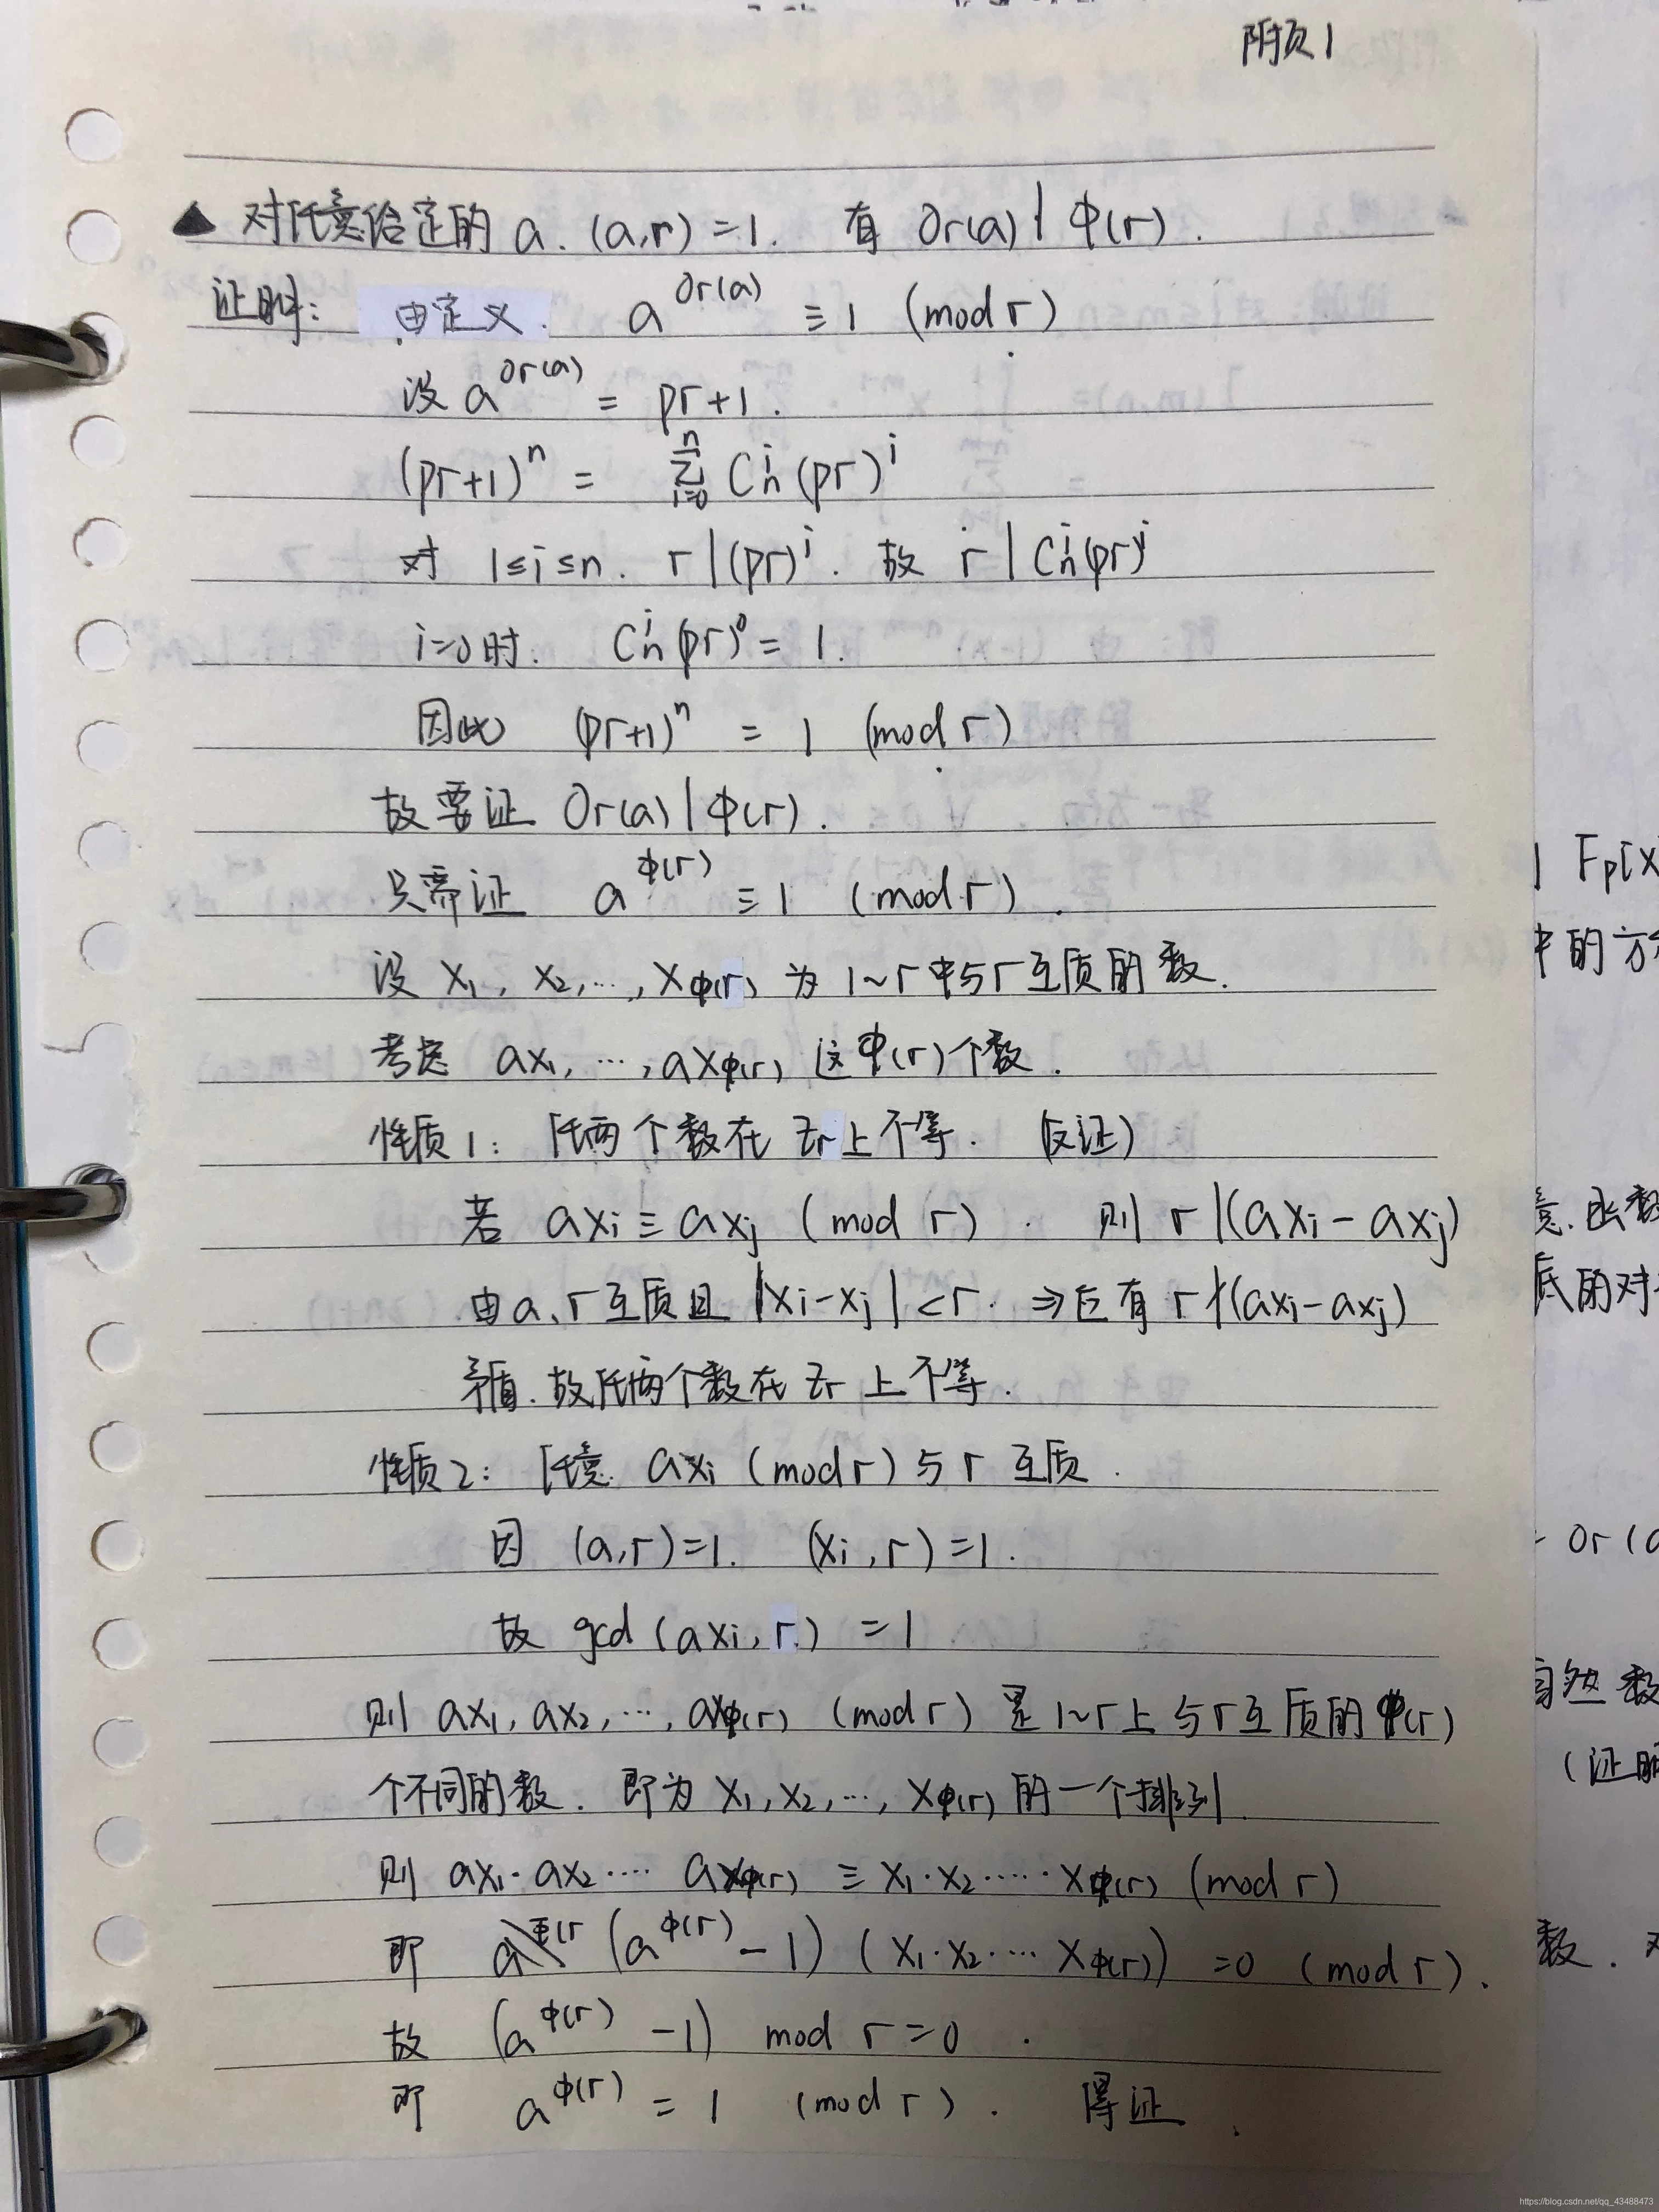 附页1
▲ 对任意给定的 a. (a,r)=1. 有 Or(a) | φ(r).
证明: 由定义. a^{Or(a)} ≡ 1 (mod r)
设 a^{Or(a)} = pr+1.
(pr+1)^n = Σ_{i=0}^{n} C_n^i (pr)^i
对 1≤i≤n. r | (pr)^i. 故 r | C_n^i (pr)^i
i=0时. C_n^i (pr)^0 = 1.
因此 (pr+1)^n = 1 (mod r)
故要证 Or(a) | φ(r).
只需证 a^{φ(r)} ≡ 1 (mod r).
设 x₁, x₂, …, x_{φ(r)} 为 1~r 中与 r 互质的数.
考虑 ax₁, …, ax_{φ(r)} 这 φ(r) 个数.
性质1: 任两个数在 Zr 上不等. (反证)
若 axi ≡ axj (mod r). 则 r | (axi - axj)
由 a、r 互质且 |xi - xj| < r. ⇒ 应有 r ∤ (axi - axj)
矛盾. 故任两个数在 Zr 上不等.
性质2: 任意 axi (mod r) 与 r 互质.
因 (a,r)=1. (xi,r)=1.
故 gcd(axi, r) = 1
则 ax₁, ax₂, …, ax_{φ(r)} (mod r) 是 1~r 上与 r 互质的 φ(r)
个不同的数. 即为 x₁, x₂, …, x_{φ(r)} 的一个排列.
则 ax₁·ax₂···· ax_{φ(r)} ≡ x₁·x₂·····x_{φ(r)} (mod r)
即 (a^{φ(r)} - 1) (x₁·x₂·… x_{φ(r)}) = 0 (mod r).
故 (a^{φ(r)} - 1) mod r = 0.
即 a^{φ(r)} = 1 (mod r). 得证.
| Fp[x
中的方
底的对
Or(a
自然数
(证明
数.
https://blog.csdn.net/qq_43488473